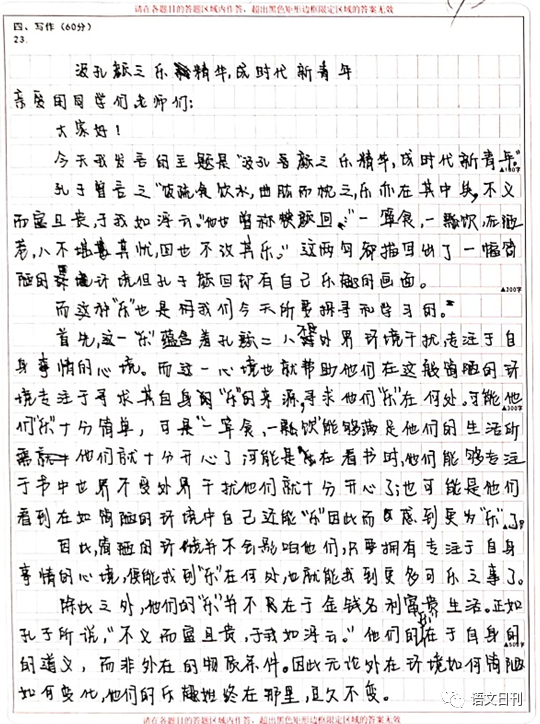 请在各题目的答题区域内作答，超出黑色矩形边框限定区域的答案无效
四、写作（60分）
23.
汲孔颜之乐精华，成时代新青年
亲爱的同学们老师们：
大家好！
今天我发言的主题是“汲孔颜之乐精华，成时代新青年。”
▲100字
孔子曾言之“饭疏食饮水，曲肱而枕之，乐亦在其中矣，不义
而富且贵，于我如浮云。”他也曾称颜回：“一箪食，一瓢饮，在陋
巷，人不堪其忧，回也不改其乐。”这两句都描写出了一幅简
陋的环境但孔子颜回却有自己乐趣的画面。
▲200字
而这种“乐”也是我们今天所要探寻和学习的。
首先，这一“乐”蕴含着孔颜二人外界环境干扰，专注于自
身事情的心境。而这一心境也就帮助他们在这般简陋的环
境专注于寻求其自身的“乐”的来源，寻求他们“乐”在何处。可能他
▲300字
们“乐”十分简单，可是“一箪食，一瓢饮”能够满足他们的生活所
他们就十分开心了；可能是在看书时，他们能够专注
于书中世界不受外界干扰他们就十分开心了；也可能是他们
看到在如简陋的环境中自己还能“乐”因此而感到更为“乐”了。
因此，简陋的环境并不会影响他们，只要拥有专注于自身
事情的心境，便能找到“乐”在何处，也就能找到更多可乐之事了。
除此之外，他们的“乐”并不在于金钱名利富贵生活。正如
孔子所说，“不义而富且贵，于我如浮云。”他们的“乐”在于自身的
▲500字
的道义，而非外在的物质条件。因此无论外在环境如何简陋
如何变化，他们的乐趣始终在那里，亘久不变。
语文日刊
请在各题目的答题区域内作答，超出黑色矩形边框限定区域的答案无效